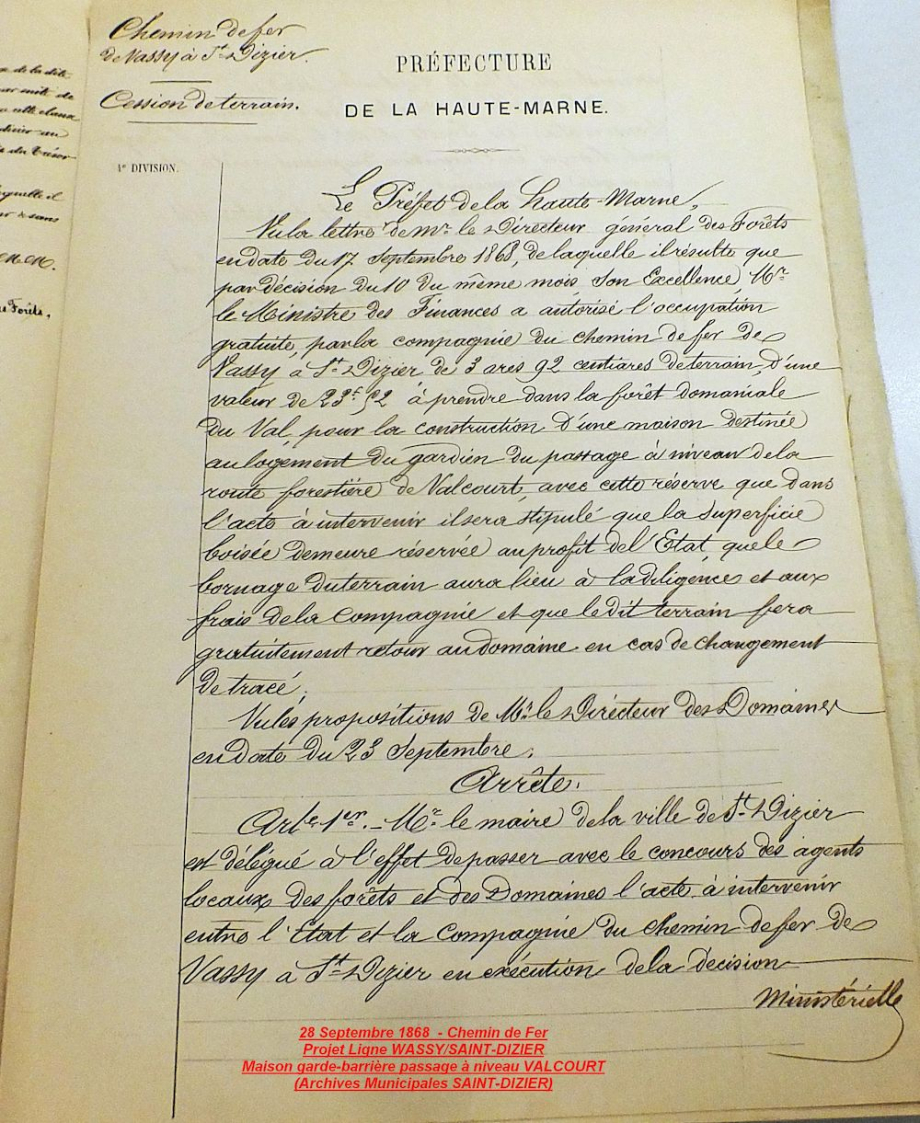 Chemin de fer
de Vassy à St Dizier.
Cession de terrain.
PRÉFECTURE
DE LA HAUTE-MARNE.
4e DIVISION.
Le Préfet de la Haute-Marne,
Vu la lettre de Mr le Directeur général des Forêts
en date du 17 Septembre 1868, de laquelle il résulte que
par décision du 10 du même mois, Son Excellence, Mr
le Ministre des Finances a autorisé l'occupation
gratuite, par la compagnie du chemin de fer de
Vassy à St Dizier, de 3 ares 92 centiares de terrain, d'une
valeur de 23f 52 à prendre dans la forêt domaniale
du Val, pour la construction d'une maison destinée
au logement du gardien du passage à niveau de la
route forestière de Valcourt, avec cette réserve que dans
l'acte à intervenir il sera stipulé que la superficie
boisée demeure réservée au profit de l'Etat, que le
bornage du terrain aura lieu à la diligence et aux
frais de la Compagnie et que le dit terrain fera
gratuitement retour au domaine en cas de changement
de tracé;
Vu les propositions de Mr le Directeur des Domaines
en date du 23 Septembre;
Arrête:
Art. 1er. - Mr le maire de la ville de St Dizier
est délégué à l'effet de passer avec le concours des agents
locaux des forêts et des Domaines l'acte à intervenir
entre l'Etat et la Compagnie du chemin de fer de
Vassy à St Dizier en exécution de la décision
Ministérielle
28 Septembre 1868 - Chemin de Fer
Projet Ligne WASSY/SAINT-DIZIER
Maison garde-barrière passage à niveau VALCOURT
(Archives Municipales SAINT-DIZIER)